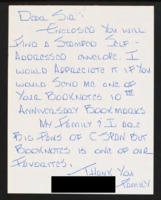 Dear Sir:
Enclosed you will
find a stamped self-
addressed envelope. I
would appreciate it if you
would send me one of
your Booknotes 10th
Anniversary Bookmarks
My family & I are
big fans of C-SPAN but
Booknotes is one of our
favorites.
Thank you
Family